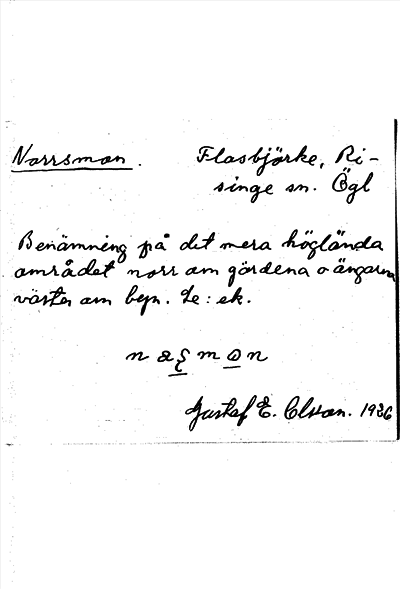 Norrsmon. Flasbjörke, Ri-
singe sn. Ögl
Benämning på det mera höglända
området norr om gärdena o ängarna
väster om byn. Le: ek.
Gustaf E. Olsson. 1936